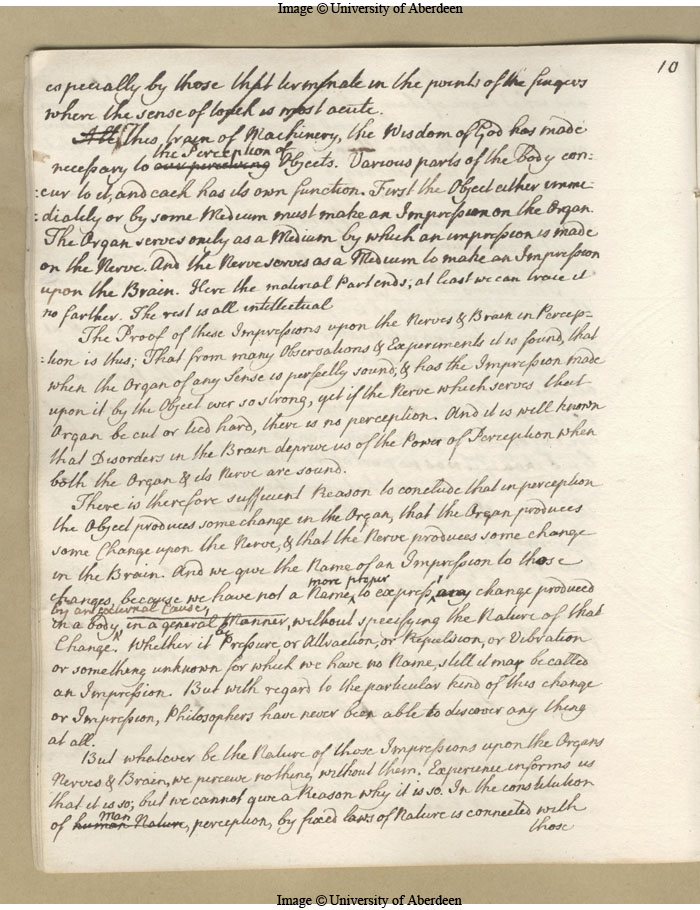 Image © University of Aberdeen
10
especially by those that terminate in the points of the fingers
where the sense of touch is most acute.
All This train of Machinery, the Wisdom of God has made
the Perception of
necessary to our perceiving Objects. Various parts of the Body con:
:cur to it, and each has its own function. First the Object either imme:
:diately or by some Medium must make an Impression on the Organ.
The Organ serves only as a Medium by which an impression is made
on the Nerve. And the Nerve serves as a Medium to make an Impression
upon the Brain. Here the material Part ends; at least we can trace it
no farther. The rest is all intellectual
The Proof of these Impressions upon the Nerves & Brain in Percep:
:tion is this; That from many Observations & Experiments it is found, that
when the Organ of any Sense is perfectly sound, & has the Impression made
upon it by the Object ever so strong, yet if the Nerve which serves that
Organ be cut or tied hard, there is no perception. And it is well known
that Disorders in the Brain deprive us of the Power of Perception when
both the Organ & its Nerve are sound.
There is therefore sufficient Reason to conclude that in perception
the Object produces some change in the Organ, that the Organ produces
some Change upon the Nerve, & that the Nerve produces some change
in the Brain. And we give the Name of an Impression to those
more proper
changes, because we have not a Name, to express any change produced
by an external Cause,
in a body, in a general Manner, without specifying the Nature of that
Change. Whether it be Pressure, or Attraction, or Repulsion, or Vibration
or something unknown for which we have no Name, still it may be called
an Impression. But with regard to the particular kind of this change
or Impression, Philosophers have never been able to discover any thing
at all.
But whatever be the Nature of those Impressions upon the Organs
Nerves & Brain, we perceive nothing without them. Experience informs us
that it is so; but we cannot give a Reason why it is so. In the constitution
man
of human Nature, perception, by fixed laws of Nature is connected with
those
Image © University of Aberdeen